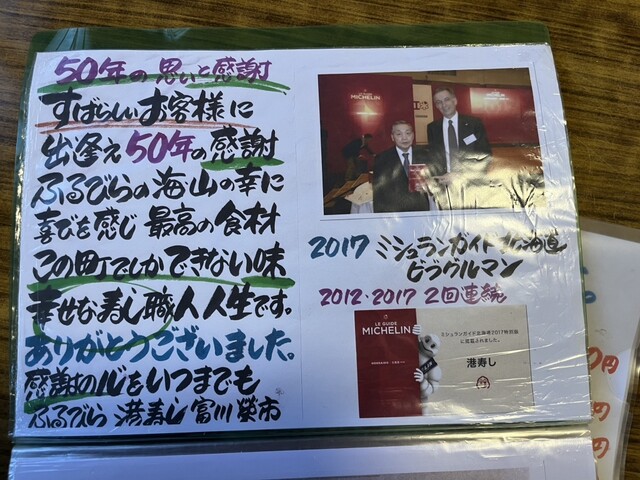 50年の思いと感謝
すばらしいお客様に
出逢え50年の感謝
ふるびらの海山の幸に
喜びを感じ最高の食材
この町でしかできない味
幸せな寿し職人人生です。
ありがとうございました。
感謝の心をいつまでも
ふるびら 港寿し 富川榮市
MICHELIN
2017 ミシュランガイド北海道
ビブグルマン
2012・2017 2回連続
LE GUIDE
MICHELIN
ミシュランガイド北海道2017特別版
に掲載されました。
港寿し
0円
円
円